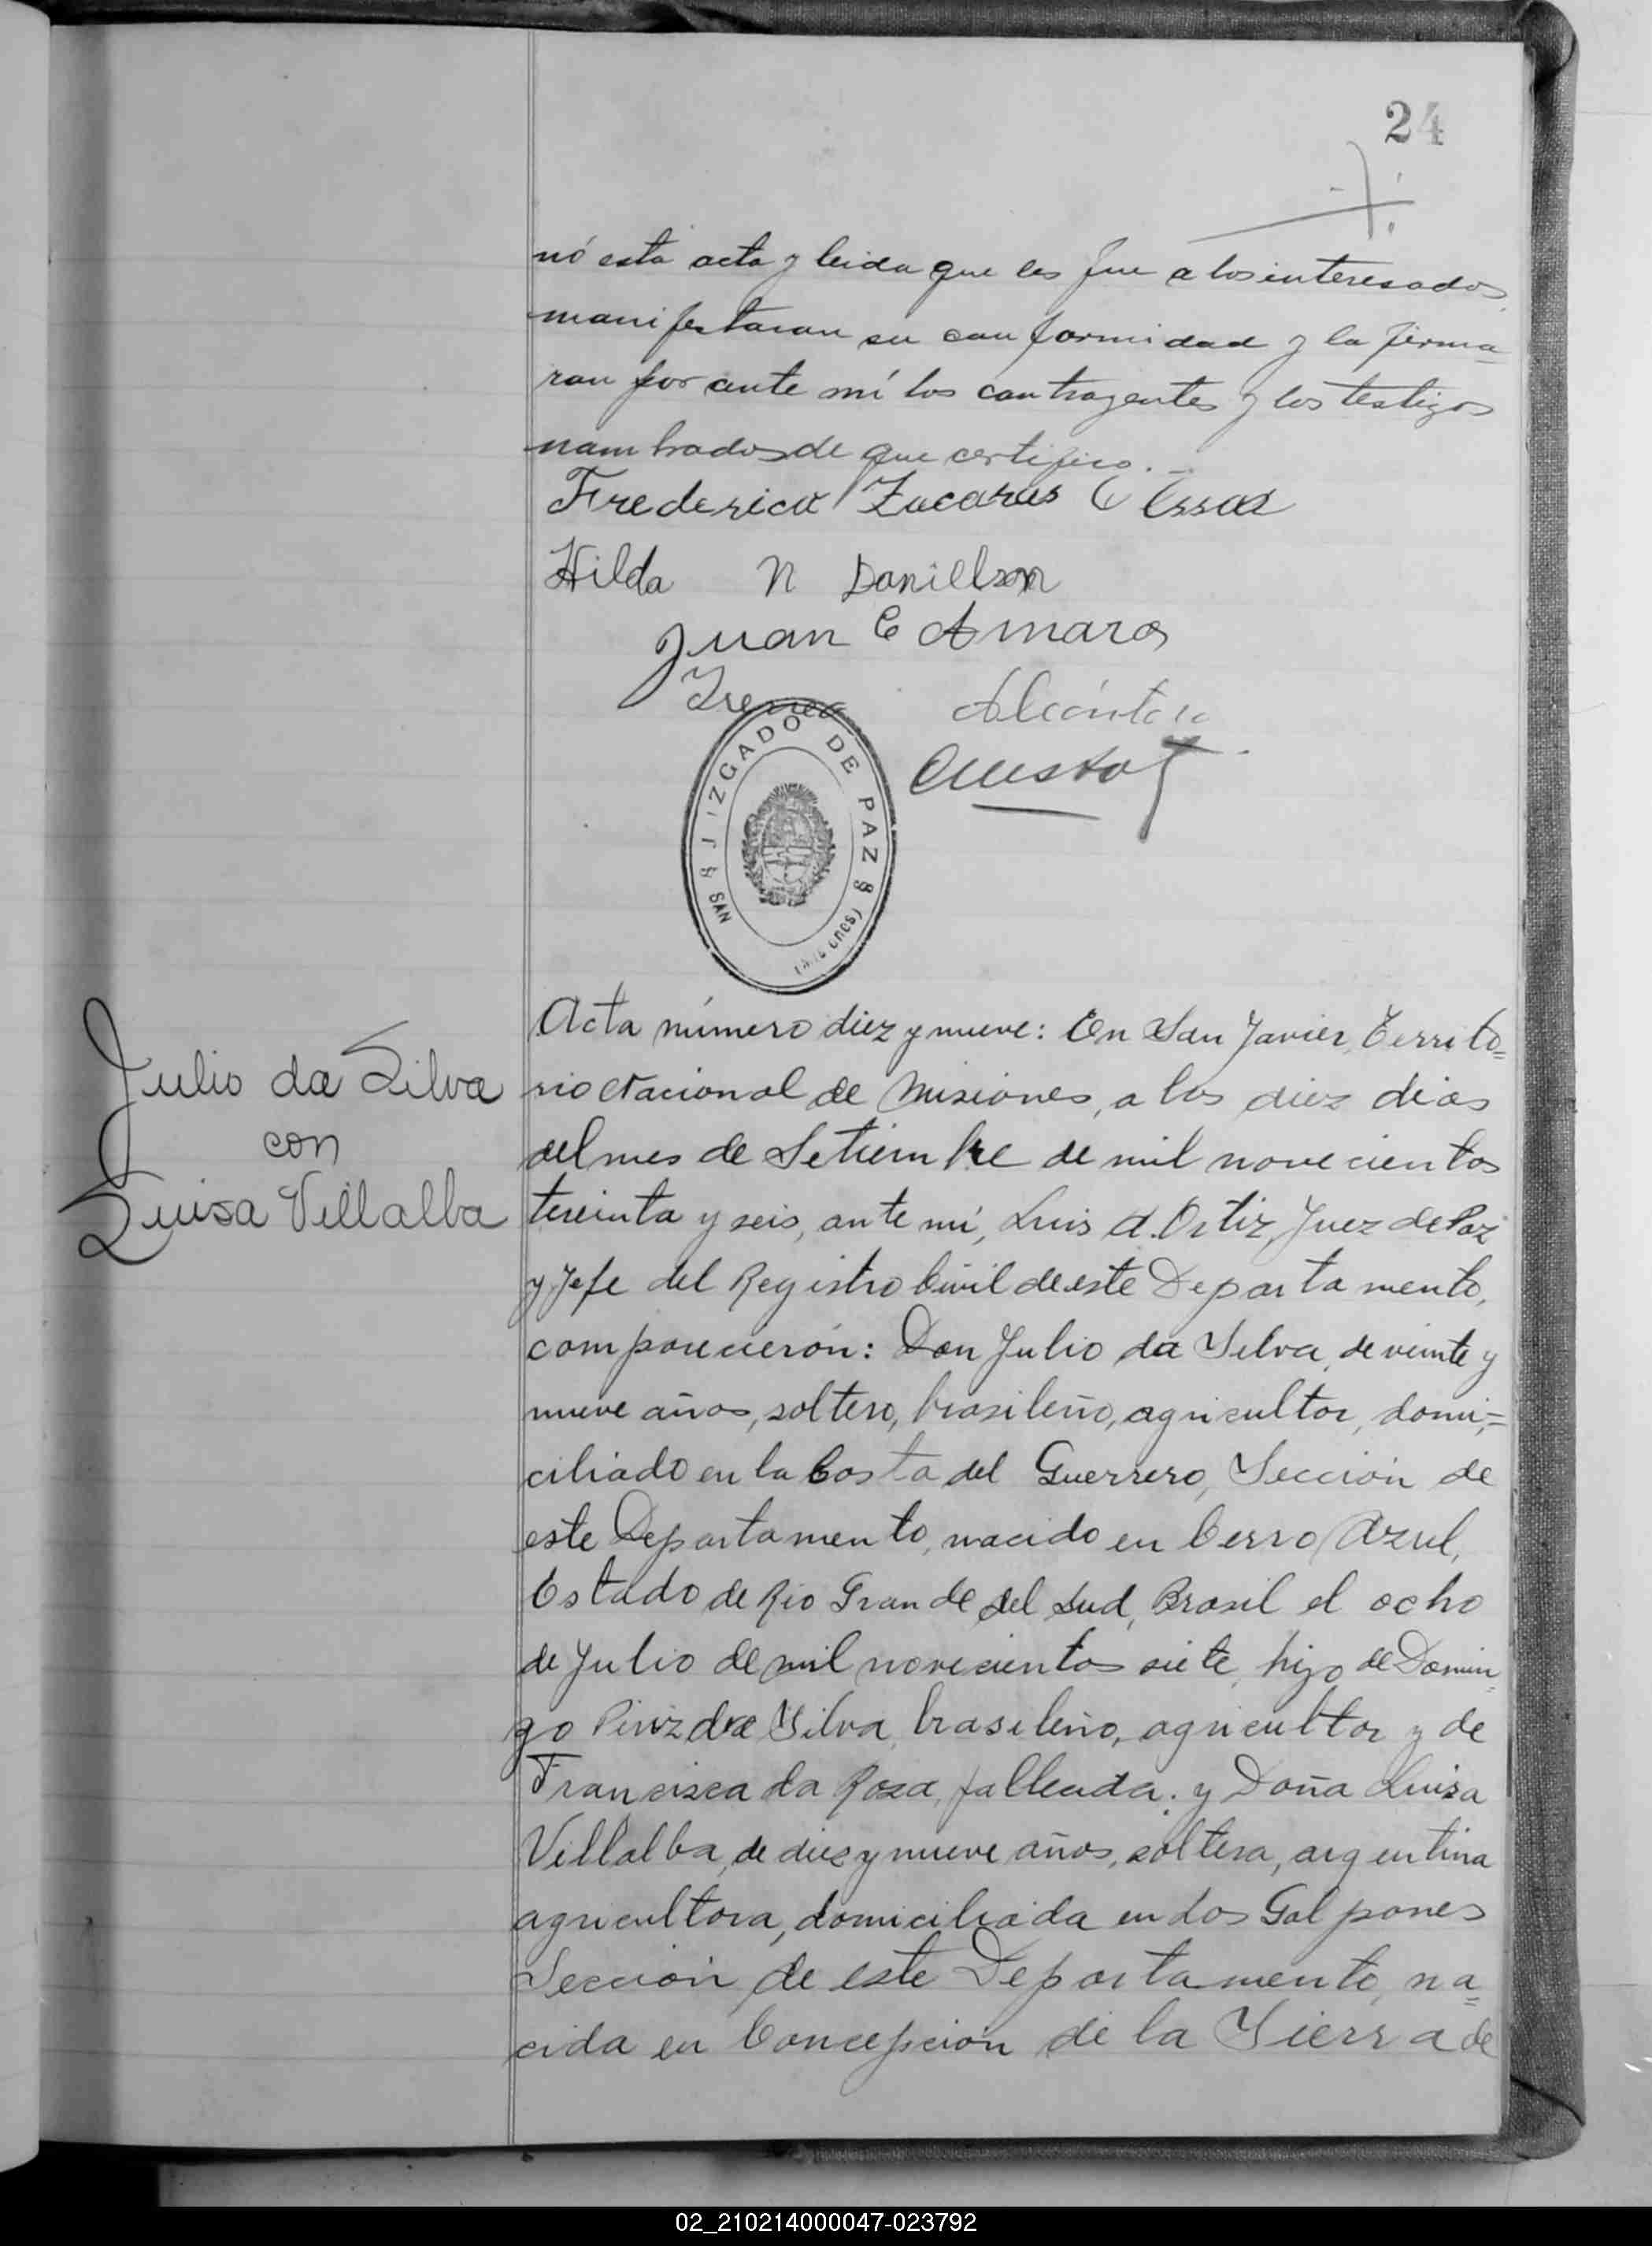 24
nó esta acta y leida que les fue a los interesados
manifestaron su conformidad y la firma-
ron por ante mí los contrayentes y los testigos
nombrados de que certifico.
Frederico
Hilda N Danielson
Juan E Amaro
Alcántara
JUZGADO DE PAZ
SAN
Julio da Silva
con
Luisa Villalba
Acta número diez y nueve: En San Javier, Territo=
rio Nacional de Misiones, a los diez dias
del mes de Setiembre de mil novecientos
treinta y seis, ante mí, Luis A. Ortiz, Juez de Paz
y Jefe del Registro Civil de este Departamento,
comparecieron: Don Julio da Silva, de veinte y
nueve años, soltero, brasileño, agricultor, domi=
ciliado en la Costa del Guerrero, Sección de
este Departamento, nacido en Cerro Azul,
Estado de Rio Grande del Sud, Brasil el ocho
de Julio de mil novecientos siete, hijo de Domin-
go da Silva, brasileño, agricultor y de
Francisca da Rosa, fallecida; y Doña Luisa
Villalba, de diez y nueve años, soltera, argentina
agricultora, domiciliada en Los Galpones
Sección de este Departamento, na=
cida en Concepción de la Sierra de
02_210214000047-023792